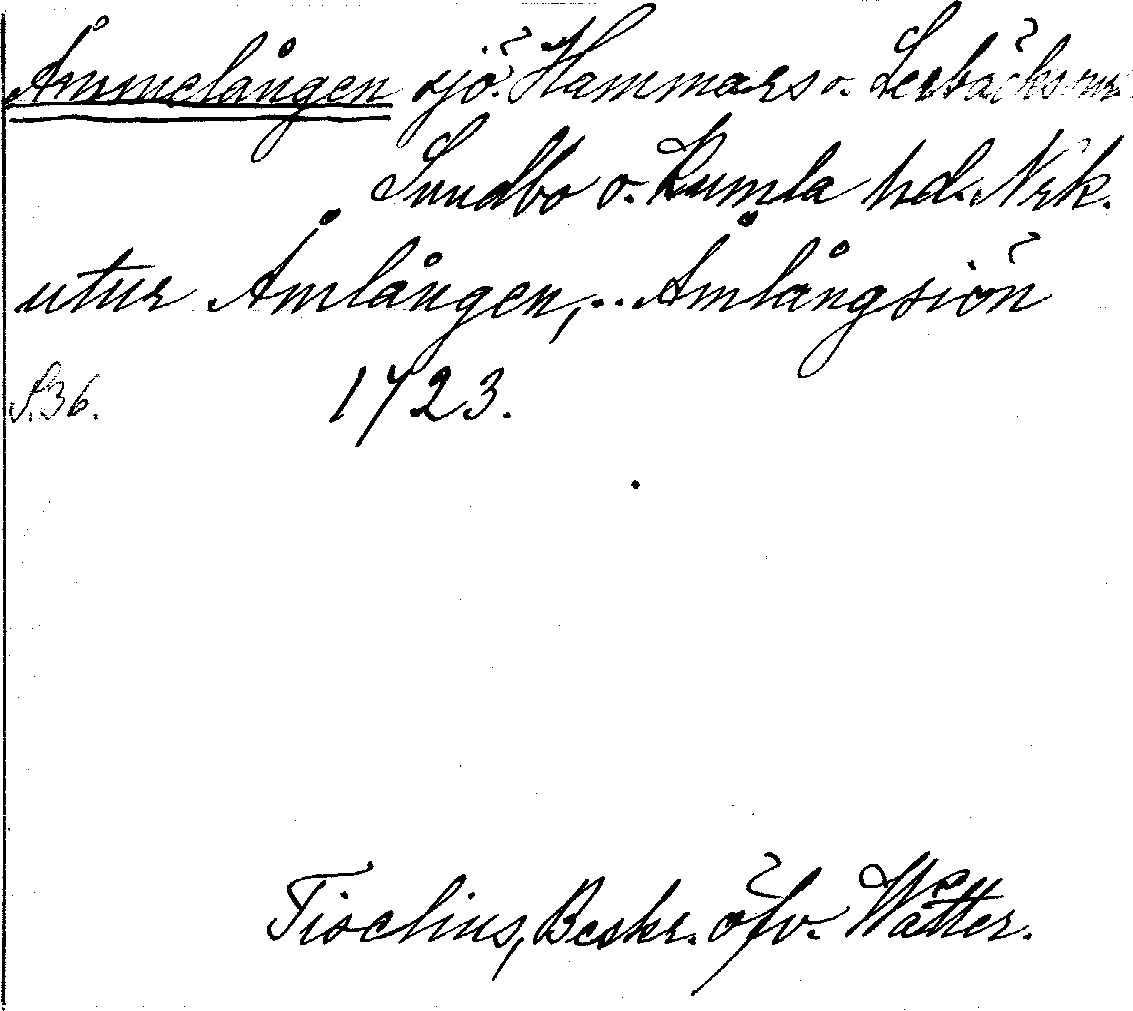 Åmmelången sjö. Hammars o. Lerbäcks snr
Sundbo o. Kumla hd. Nrk.
utur Åmlången,.. Åmlångsiön
S.36. 1723.
Tiselius, Beskr. öfv. Wätter.